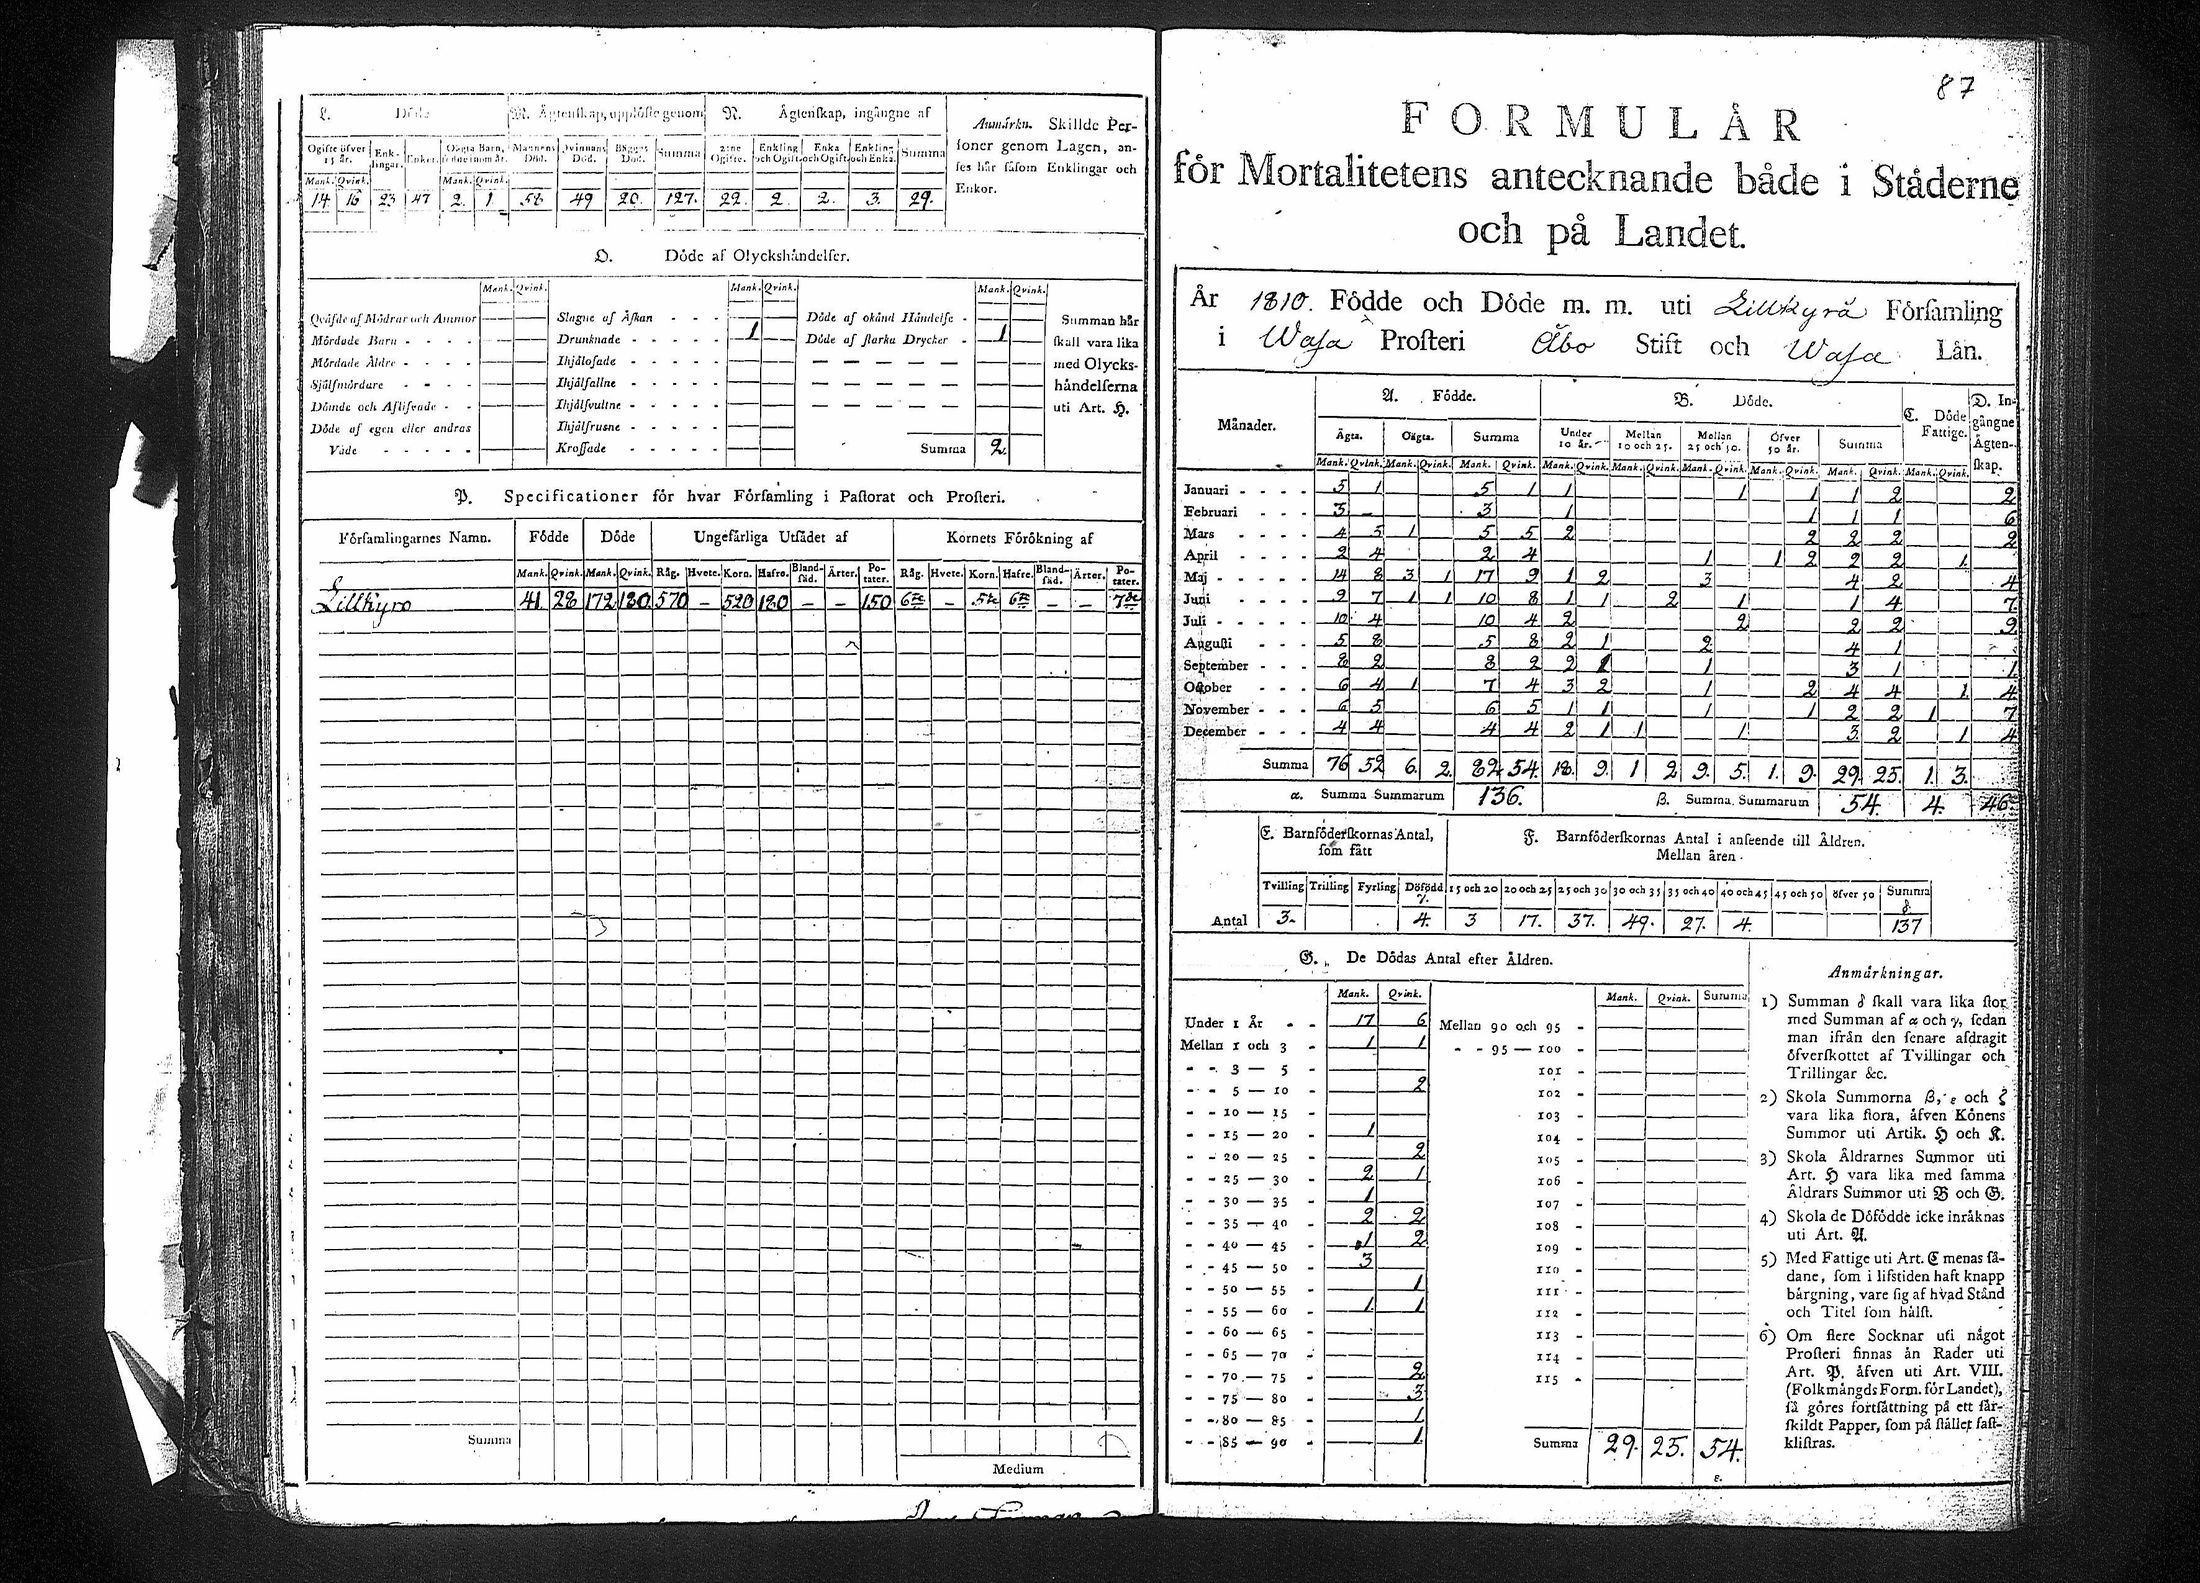 L. Döde
M. Ägtenskap, upplöste genom
N. Ägtenskap, ingångne af
Ogifte öfver 15 år. Enklingar. Enkor. Oägta Barn, födde inom år. Mannens Död. Qvinnans Död. Bägges Död. Summa 2:ne Ogifte. Enkling och Ogift. Enka och Ogift. Enkling och Enka. Summa
Mank. Qvink. Mank. Qvink.
14 16 23 47 2. 1 58 49 20. 127. 22. 2. 2. 3. 29.
Anmärkn. Skillde Per-
soner genom Lagen, an-
ses här såsom Enklingar och
Enkor.
O. Döde af Olyckshändelser.
Mank. Qvink. Mank. Qvink. Mank. Qvink.
Qväfde af Mödrar och Ammor Slagne af Åskan - - - Döde af okänd Händelse -
Mördade Barn - - - - Drunknade - - - - - 1 Döde af starka Drycker - 1
Mördade Äldre - - - - Ihjälosade - - - - -
Självmördare - - - - Ihjälfallne - - - - -
Dömde och Aflifvade - - Ihjälfvultne - - - - -
Döde af egen eller andras Ihjälfrusne - - - - -
Våde - - - - - Krossade - - - - - Summa 2
Summan här
skall vara lika
med Olycks-
händelserna
uti Art. H.
P. Specificationer för hvar Församling i Pastorat och Prosteri.
Församlingarnes Namn. Födde Döde Ungefärliga Utsädet af Kornets Förökning af
Mank. Qvink. Mank. Qvink. Råg. Hvete. Korn. Hafre. Bland-säd. Ärter. Po-tater. Råg. Hvete. Korn. Hafre. Bland-säd. Ärter. Po-tater.
Lillkyro 41. 28 172 180 570 — 520 180 — — 150 6te — 5te 6te — — 7de
Summa
Medium
87
FORMULÄR
för Mortalitetens antecknande både i Städerne
och på Landet.
År 1810. Födde och Döde m. m. uti Lillkyrå Församling
i Wasa Prosteri Åbo Stift och Wasa Län.
Månader. A. Födde. B. Döde. C. Döde Fattige. D. In-gångne Ägten-skap.
Ägta. Oägta. Summa Under 10 år. Mellan 10 och 25. Mellan 25 och 50. Öfver 50 år. Summa
Mank. Qvink. Mank. Qvink. Mank. Qvink. Mank. Qvink. Mank. Qvink. Mank. Qvink. Mank. Qvink. Mank. Qvink. Mank. Qvink.
Januari - - - - 5 1 5 1 1 1 1 1 2 2
Februari - - - 3 - 3 1 1 1 1 6
Mars - - - - 4 5 1 5 5 2 2 2 2 2
April - - - - 2 4 2 4 1 1 2 2 2 1.
Maj - - - - - 14 8 3 1 17 9 1 2 3 4 2 4
Juni - - - - 9 7 1 1 10 8 1 1 2 1 1 4 7.
Juli - - - - - 10 4 10 4 2 2 2 2 9
Augusti - - - 5 8 5 8 2 1 2 4 1
September - - - 8 2 8 2 2 1 1 3 1 1.
October - - - 6 4 1 7 4 3 2 1 2 4 4 1. 4
November - - - 6 5 6 5 1 1 1 1 2 2 1 7
December - - - 4 4 4 4 2 1 1 1 3 2 1 4
Summa 76 52 6. 2. 82 54. 18. 9. 1 2 9. 5. 1. 9. 29. 25. 1. 3.
α. Summa Summarum 136. β. Summa Summarum 54. 4. 46
E. Barnföderskornas Antal, som fått
F. Barnföderskornas Antal i anseende till Åldren.
Mellan åren
Tvilling Trilling Fyrling Döfödd γ. 15 och 20 20 och 25 25 och 30 30 och 35 35 och 40 40 och 45 45 och 50 öfver 50 Summa δ.
Antal 3. 4. 3 17. 37. 49. 27. 4. 137
G. De Dödas Antal efter Åldren.
Mank. Qvink. Mank. Qvink. Summa
Under 1 År - - 17 6 Mellan 90 och 95 -
Mellan 1 och 3 - 1 1 - - 95 — 100 -
- - 3 — 5 - 101 -
- - 5 — 10 - 2 102 -
- - 10 — 15 - 103 -
- - 15 — 20 - 1 104 -
- - 20 — 25 - 2 105 -
- - 25 — 30 - 2 1 106 -
- - 30 — 35 - 1 107 -
- - 35 — 40 - 2 2 108 -
- - 40 — 45 - 1 2 109 -
- - 45 — 50 - 3 110 -
- - 50 — 55 - 1 111 -
- - 55 — 60 - 1. 1 112 -
- - 60 — 65 - 113 -
- - 65 — 70 - 114 -
- - 70 — 75 - 2 115 -
- - 75 — 80 - 3
- - 80 — 85 - 1
- - 85 — 90 - 1. Summa 29. 25. 54.
ε.
Anmärkningar.
1) Summan δ skall vara lika stor
med Summan af α och γ, sedan
man ifrån den senare afdragit
öfverskottet af Tvillingar och
Trillingar &c.
2) Skola Summorna β, ε och ζ
vara lika stora, äfven Könens
Summor uti Artik. H och K.
3) Skola Åldrarnes Summor uti
Art. H vara lika med samma
Åldrars Summor uti B och G.
4) Skola de Döfödde icke inräknas
uti Art. A.
5) Med Fattige uti Art. C menas så-
dane, som i lifstiden haft knapp
bärgning, vare sig af hvad Stånd
och Titel som hälst.
6) Om flere Socknar uti något
Prosteri finnas än Rader uti
Art. P. äfven uti Art. VIII.
(Folkmängds Form. för Landet),
så göres fortsättning på ett sär-
skildt Papper, som på stället fast-
klistras.